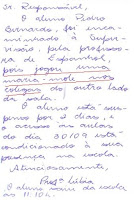 Sr. Responsável,
O aluno Pedro
Bernardo, foi enca-
minhado à Super-
visão, pela professo-
ra de Espanhol,
pois jogou uma
maria-mole nos
colegas do outro lado
da sala.
O aluno está sus-
penso por 2 dias, e
o acesso às aulas
do dia 30/09 está
condicionado à sua
presença na escola.
Atenciosamente,
Profª Lúbia
O aluno saiu da escola
às 11:10h.